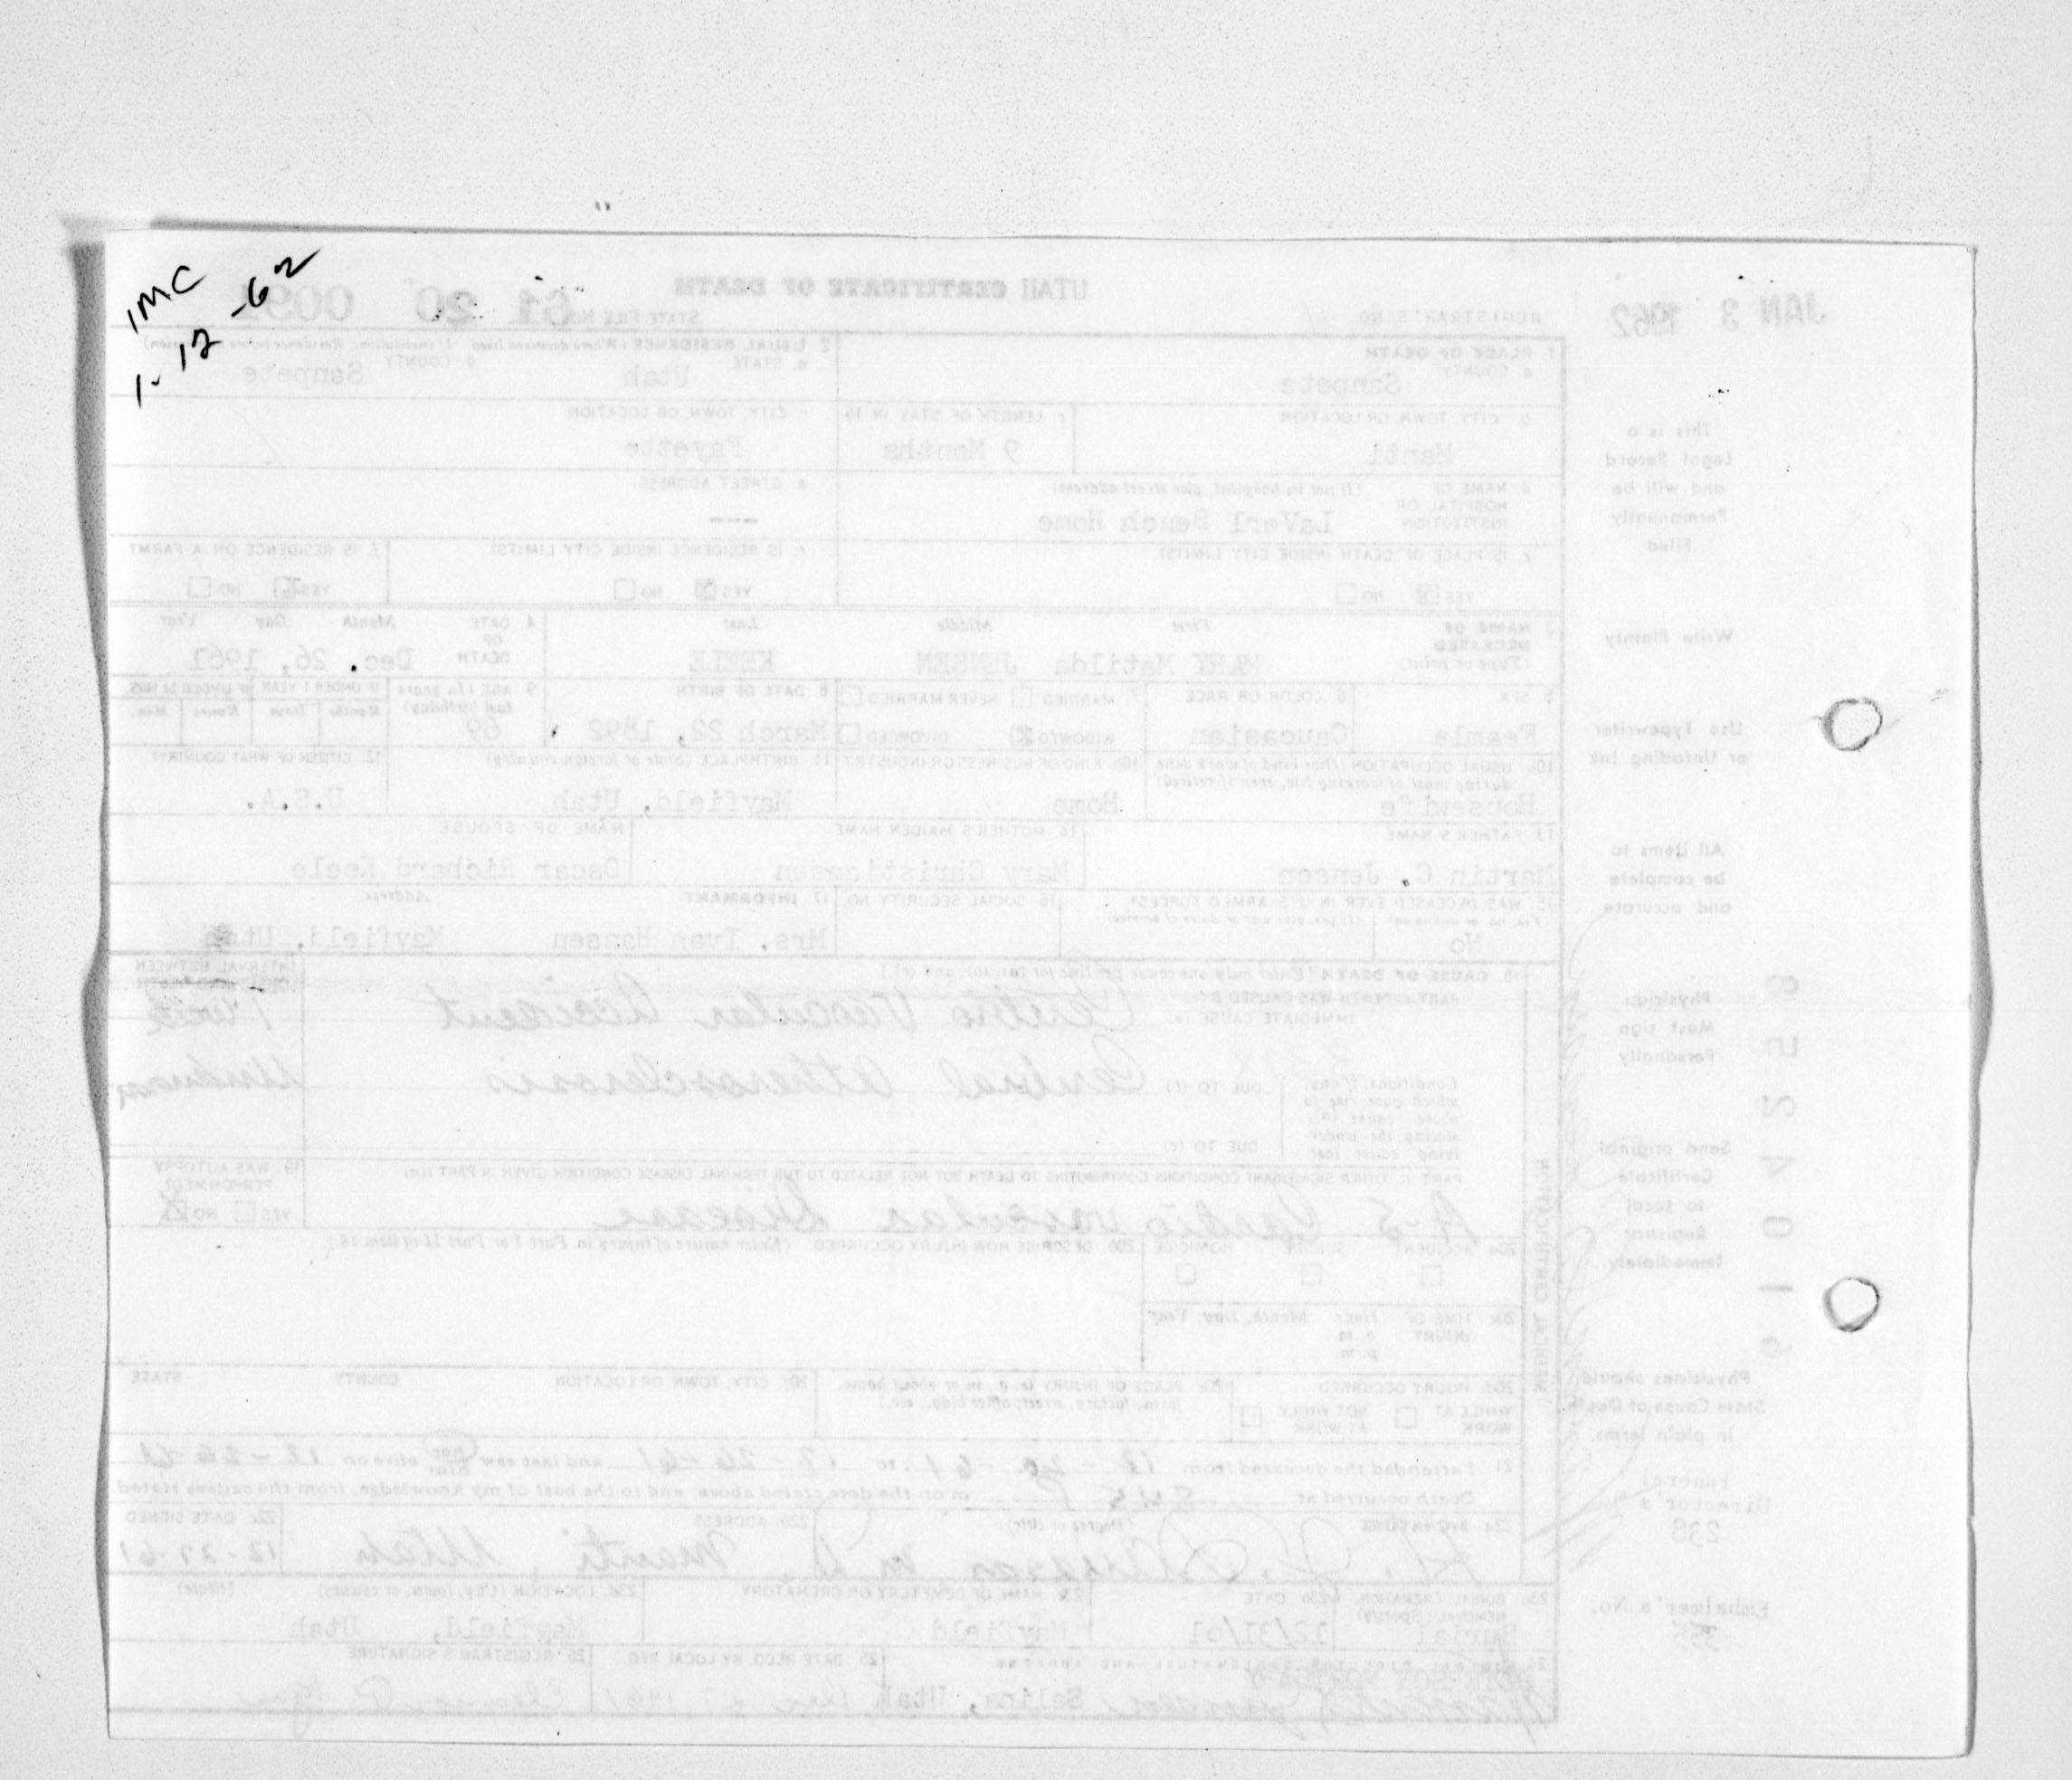 IMC
1-12-62
JAN 3 1962
UTAH CERTIFICATE OF DEATH
REGISTRAR'S NO.
STATE FILE NO. 61 20
This is a
Legal Record
and will be
Permanently
Filed
Write Plainly
Use Typewriter
or Unfading Ink
All items to
be complete
and accurate
Physician
Must sign
Personally
Send original
Certificate
to local
Registrar
Immediately
Physicians should
State Cause of Death
in plain terms.
Funeral
Director's No.
239
Embalmer's No.
1. PLACE OF DEATH
a. COUNTY
Sanpete
2. USUAL RESIDENCE (Where deceased lived. If institution: Residence before admission)
a. STATE Utah
b. COUNTY Sanpete
b. CITY, TOWN, OR LOCATION
Manti
c. LENGTH OF STAY IN 1b
9 Months
c. CITY, TOWN, OR LOCATION
Fayette
d. NAME OF HOSPITAL OR INSTITUTION (If not in hospital, give street address)
LaVerl Dench Home
d. STREET ADDRESS
---
e. IS PLACE OF DEATH INSIDE CITY LIMITS?
YES NO
e. IS RESIDENCE INSIDE CITY LIMITS?
YES NO
f. IS RESIDENCE ON A FARM?
YES NO
3. NAME OF DECEASED (Type or print)
First Middle Last
MARY Matilda JENSEN KEELE
4. DATE OF DEATH
Month Day Year
Dec. 26, 1961
5. SEX
Female
6. COLOR OR RACE
Caucasian
7. MARRIED NEVER MARRIED
WIDOWED DIVORCED
8. DATE OF BIRTH
March 22, 1892
9. AGE (In years last birthday)
69
IF UNDER 1 YEAR
Months Days
IF UNDER 24 HRS.
Hours Min.
10a. USUAL OCCUPATION (Give kind of work done during most of working life, even if retired)
Housewife
10b. KIND OF BUSINESS OR INDUSTRY
Home
11. BIRTHPLACE (State or foreign country)
Mayfield, Utah
12. CITIZEN OF WHAT COUNTRY?
U.S.A.
13. FATHER'S NAME
Martin C. Jensen
14. MOTHER'S MAIDEN NAME
Mary Christiansen
NAME OF SPOUSE
Oscar Richard Keele
15. WAS DECEASED EVER IN U.S. ARMED FORCES?
(Yes, no, or unknown) (If yes, give war or dates of service)
No
16. SOCIAL SECURITY NO.
17. INFORMANT Address
Mrs. Ivan Hansen Mayfield, Utah
18. CAUSE OF DEATH (Enter only one cause per line for (a), (b), and (c).)
PART I. DEATH WAS CAUSED BY:
IMMEDIATE CAUSE (a) Cerebro Vascular Accident
INTERVAL BETWEEN ONSET AND DEATH
Conditions, if any, which gave rise to above cause (a), stating the underlying cause last
DUE TO (b) Cerebral Atherosclerosis
Unknown
DUE TO (c)
PART II. OTHER SIGNIFICANT CONDITIONS CONTRIBUTING TO DEATH BUT NOT RELATED TO THE TERMINAL DISEASE CONDITION GIVEN IN PART I(a)
A-S Cardio vascular Disease
19. WAS AUTOPSY PERFORMED?
YES NO
MEDICAL CERTIFICATION
20a. ACCIDENT SUICIDE HOMICIDE
20b. DESCRIBE HOW INJURY OCCURRED. (Enter nature of injury in Part I or Part II of item 18.)
20c. TIME OF INJURY Hour Month, Day, Year
a.m.
p.m.
20d. INJURY OCCURRED
WHILE AT WORK NOT WHILE AT WORK
20e. PLACE OF INJURY (e.g., in or about home, farm, factory, street, office bldg., etc.)
20f. CITY, TOWN, OR LOCATION COUNTY STATE
21. I attended the deceased from 12-20-61, to 12-26-61 and last saw her alive on 12-26-61
Death occurred at 845 P m on the date stated above, and to the best of my knowledge, from the causes stated.
22a. SIGNATURE (Degree or title)
M.D.
22b. ADDRESS
Manti, Utah
22c. DATE SIGNED
12-27-61
23a. BURIAL, CREMATION, REMOVAL (Specify)
Burial
23b. DATE
12/31/61
23c. NAME OF CEMETERY OR CREMATORY
Mayfield
23d. LOCATION (City, town, or county) (State)
Mayfield, Utah
24. FUNERAL DIRECTOR'S SIGNATURE AND ADDRESS
Salina, Utah
25. DATE RECD. BY LOCAL REG.
Dec 27, 1961
26. REGISTRAR'S SIGNATURE